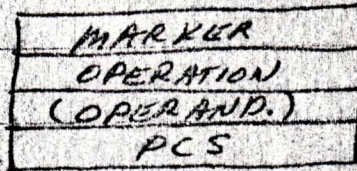 MARKER
OPERATION
(OPERAND.)
PCS